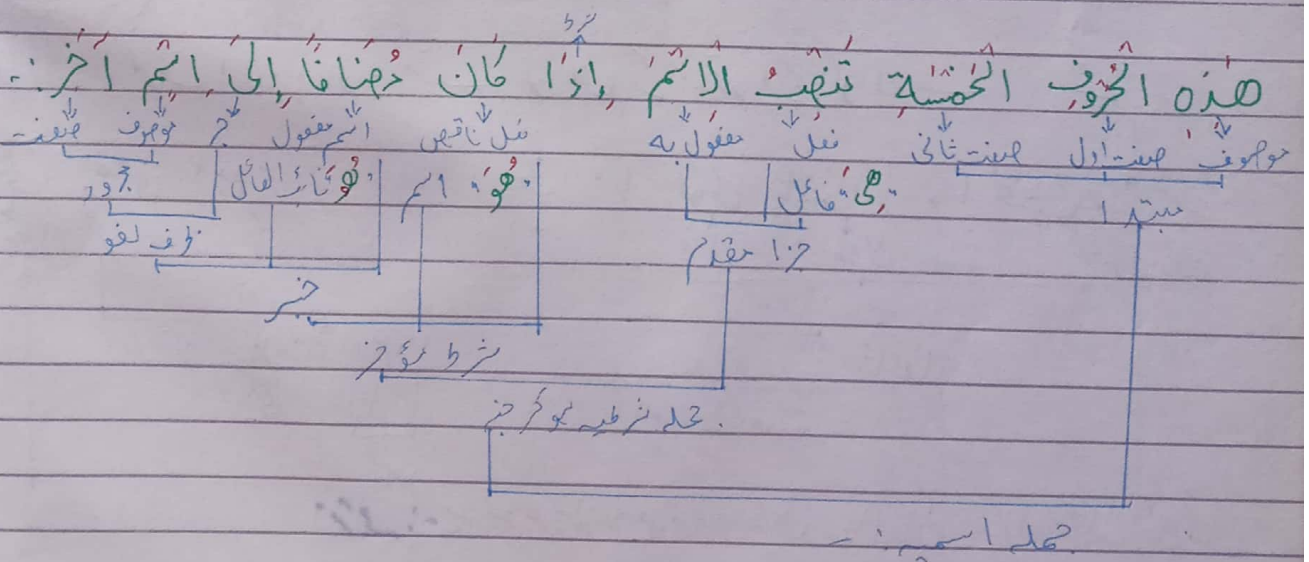 شرط
هٰذِهِ الْحُرُوْفِ الْخَمْسَةِ تَنْصِبُ الْاِسْمَ اِذَا كَانَ مُضَافًا اِلٰى اِسْمٍ اٰخَرَ
موصوف صفت اول صفت ثانی فعل مفعول به فعل ناقص اسم مفعول جر موصوف صفت
"هِیَ" فاعل "هُوَ" اسم "هُوَ" نائب الفاعل مجرور
مبتدا
جزا مقدم ظرف لغو
خبر
شرط مؤخر
جملہ شرطیہ ہوکر خبر
جملہ اسمیہ